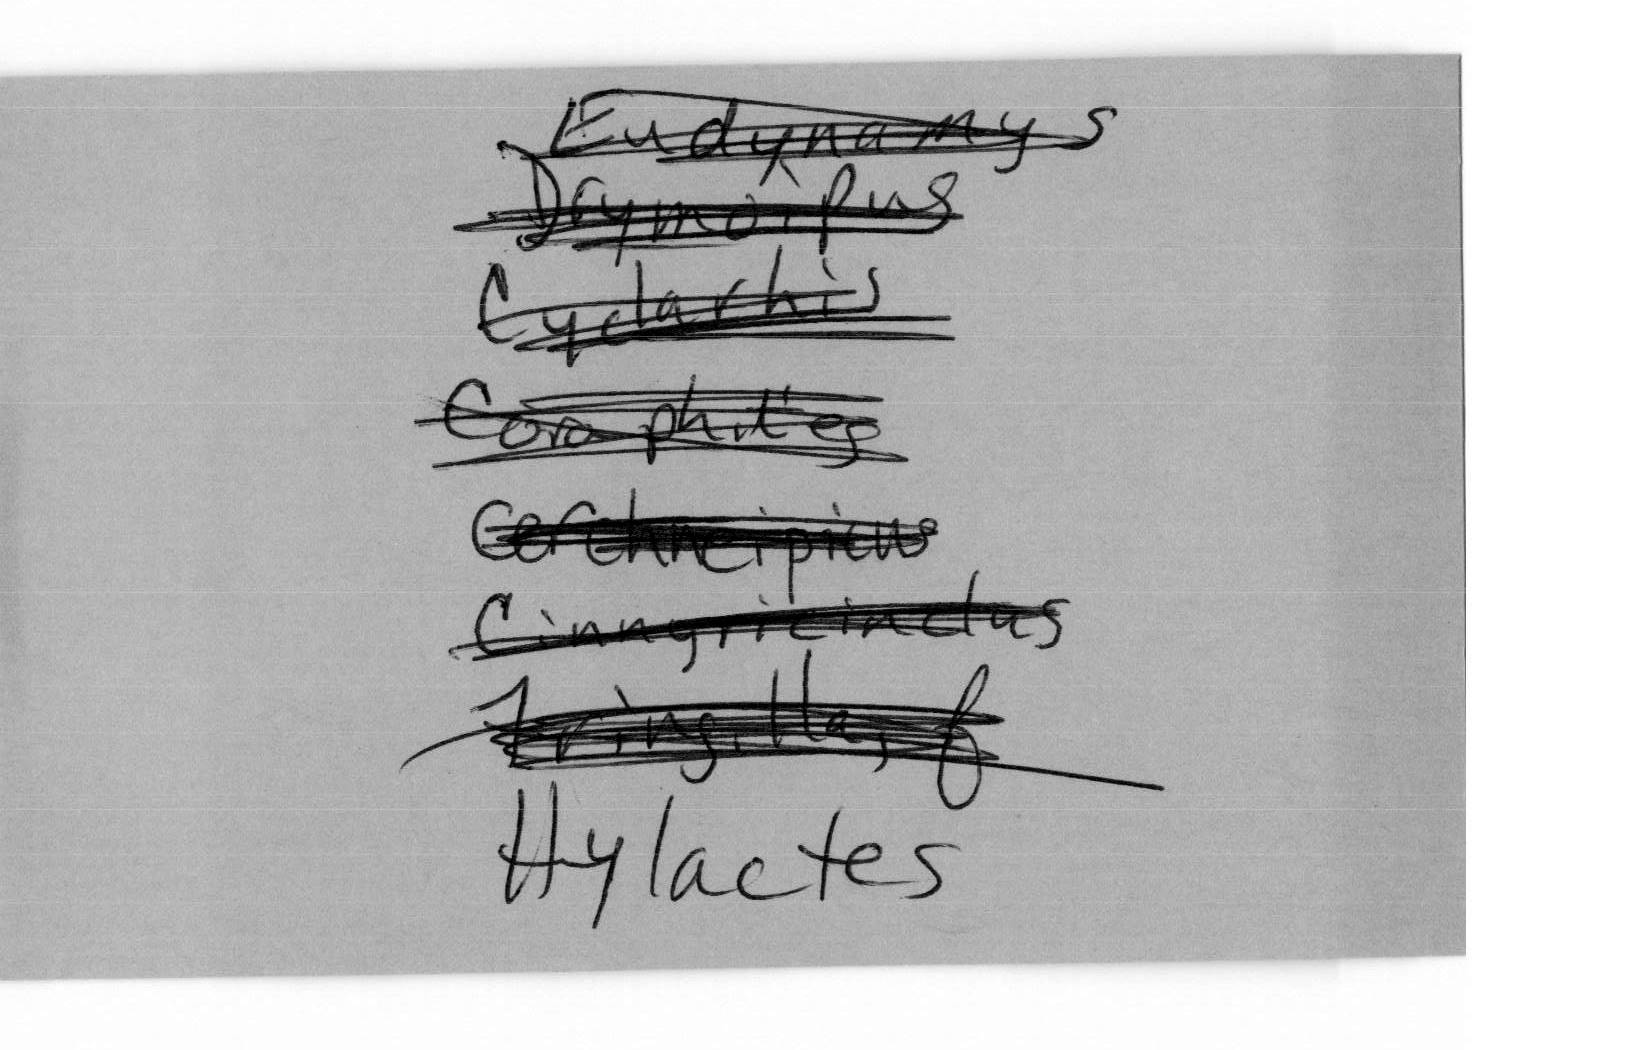 Eudynamys
Drymoipus
Cyclarhis
Coraphites
Cerchneipicus
Cinnyricinclus
Fringilla, f
Hylactes